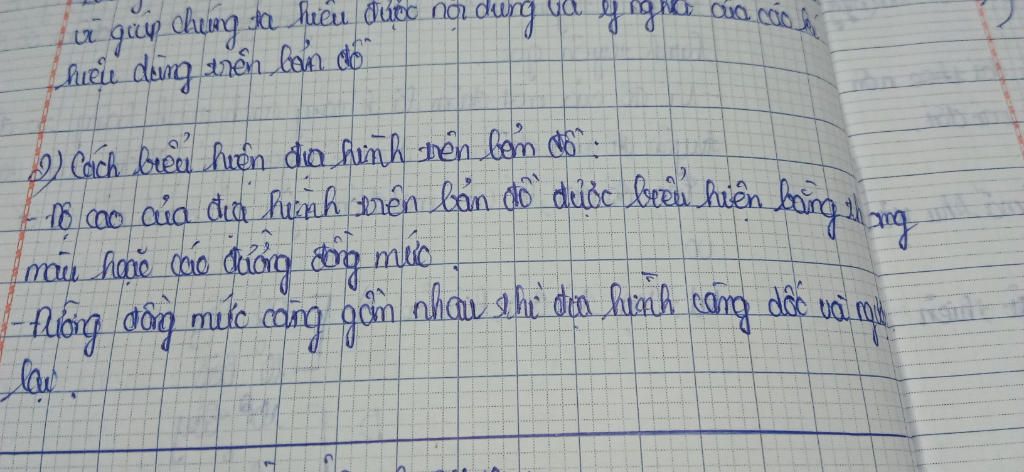 giúp chúng ta hiểu được nội dung và ý nghĩa của các kí
hiệu dùng trên bản đồ
2) Cách biểu hiện địa hình trên bản đồ:
- Độ cao của địa hình trên bản đồ được biểu hiện bằng thang
màu hoặc các đường đồng mức.
- Đường đồng mức càng gần nhau thì địa hình càng dốc và
lại.